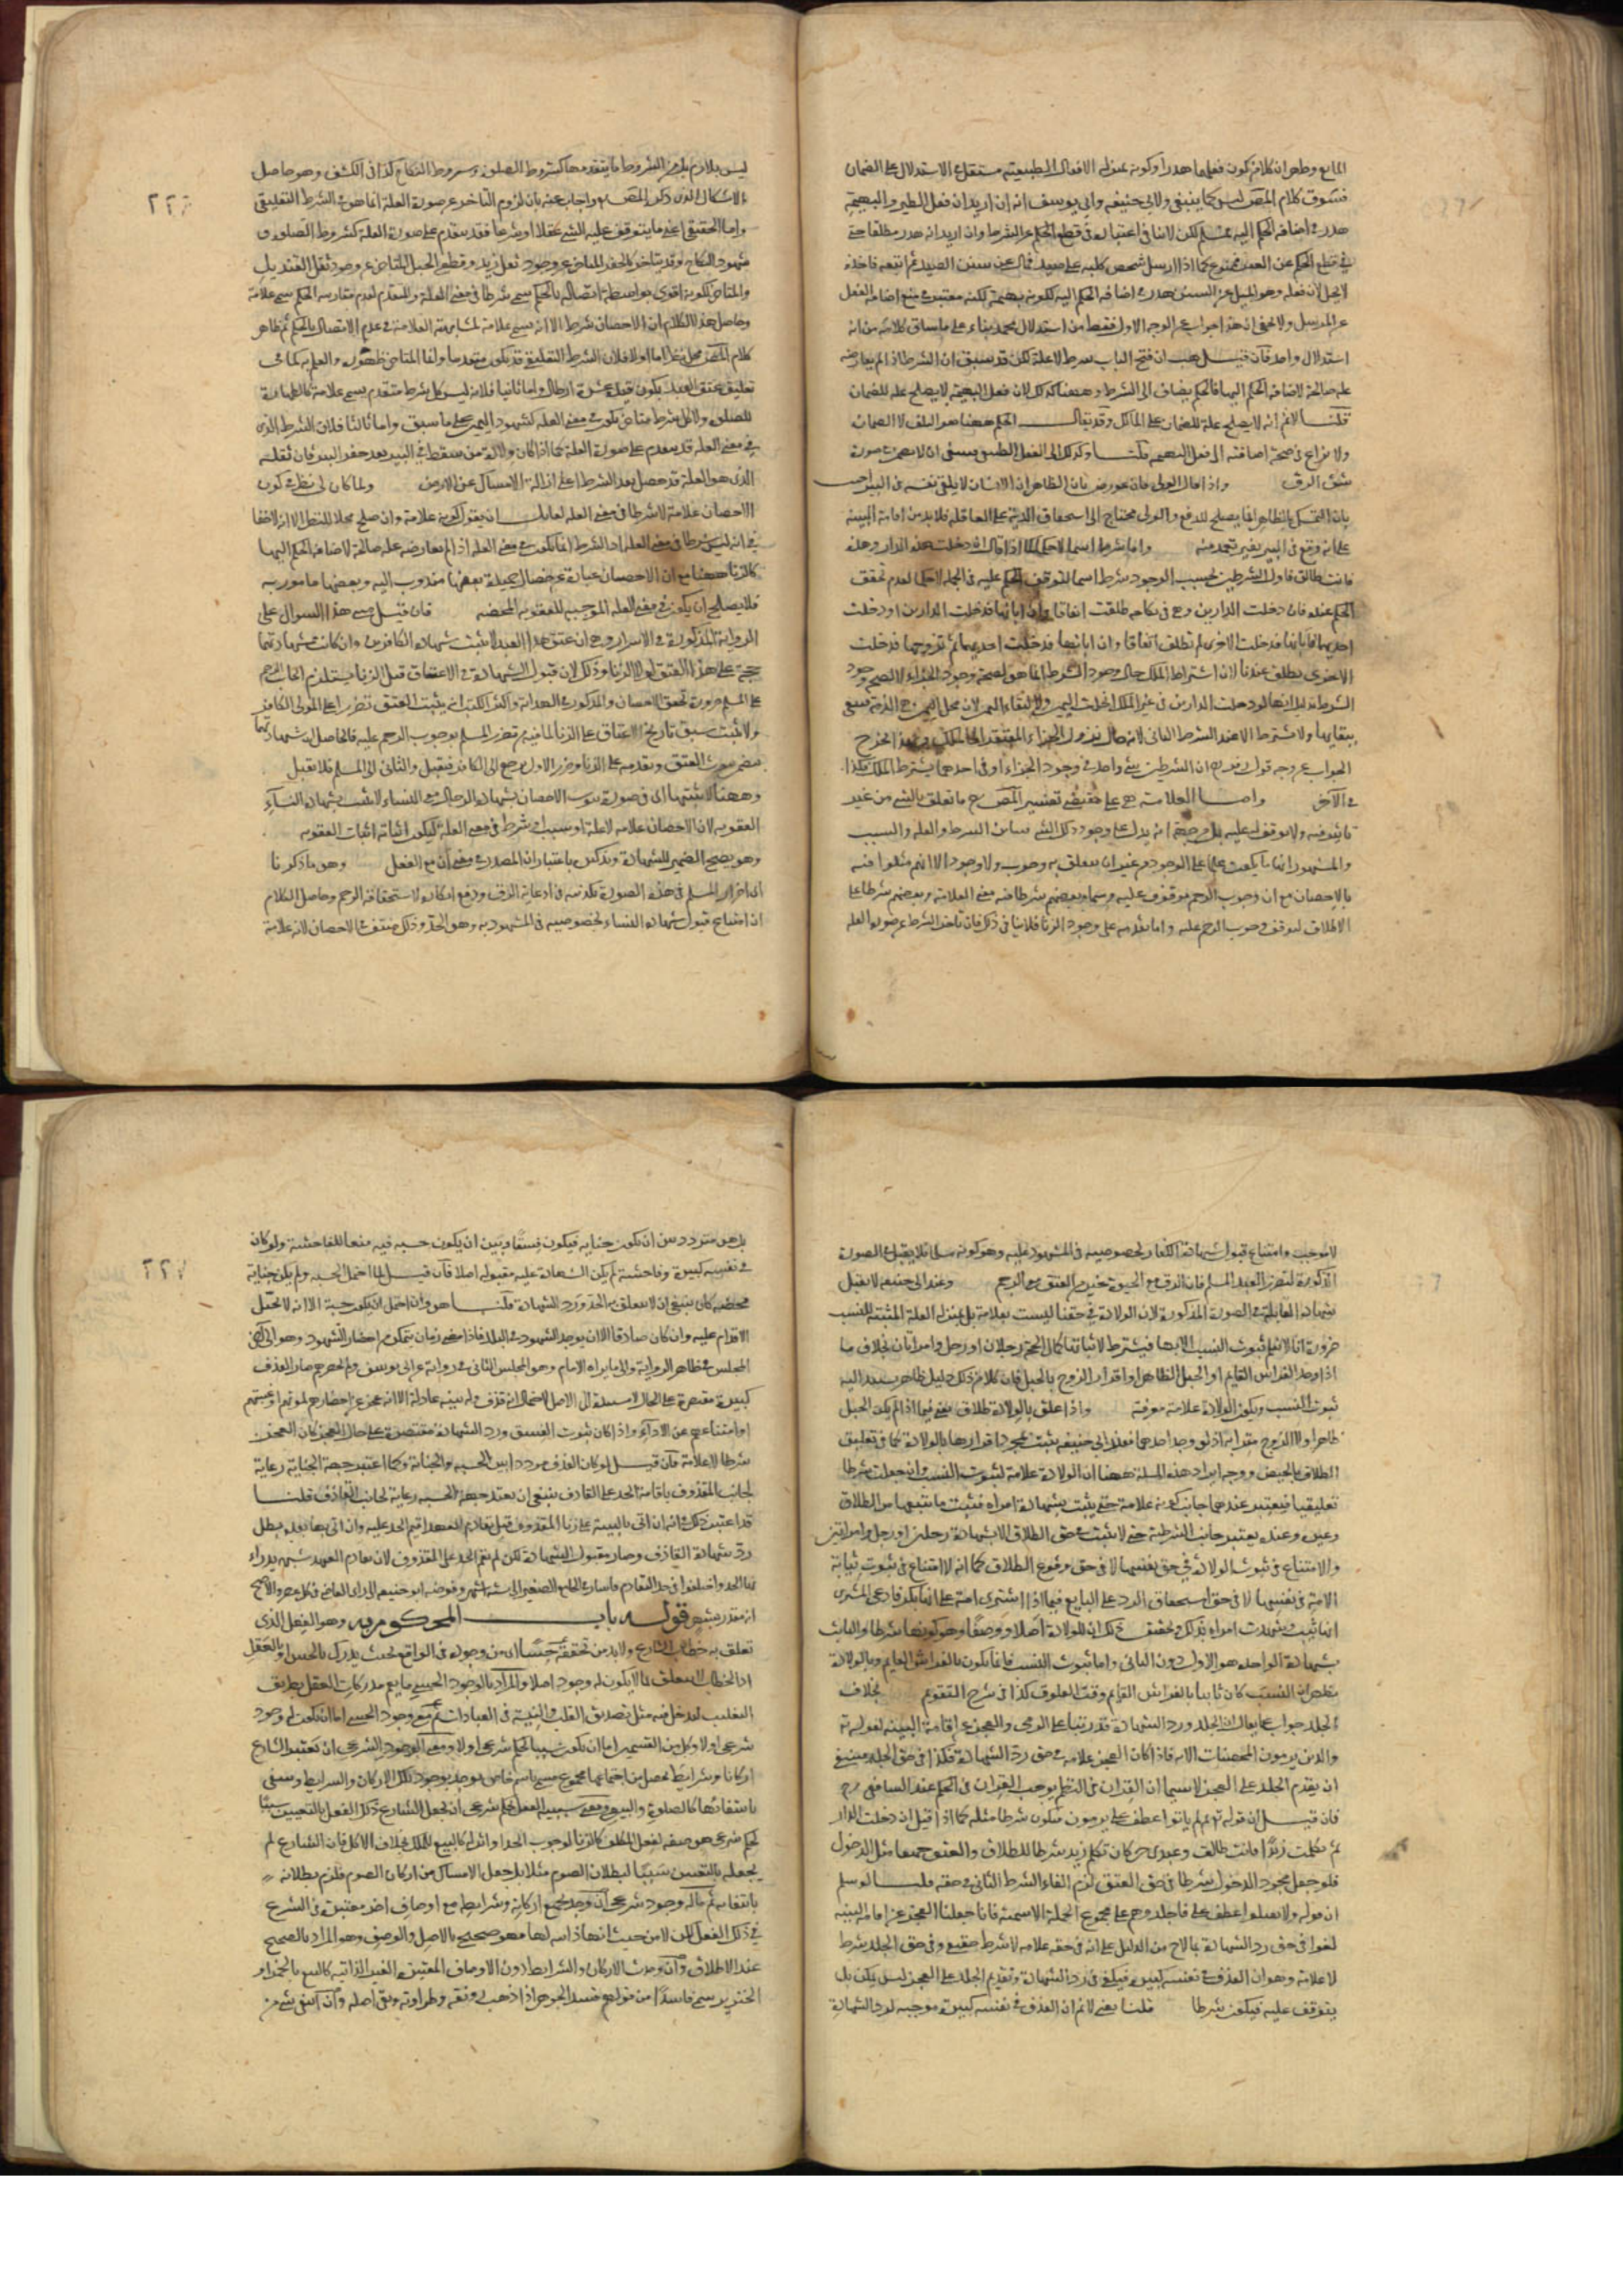 المانع وظهر ان كلا من كون فعلها هدرا وكونه بمنزلة الافعال الطبيعية مستقل في الاستدلال على الضمان
فسوق كلام المص ليس كما ينبغي ولابي حنيفه وابي يوسف انه ان اريد ان فعل الطير والبهيمة
هدر في اضافه الحكم اليه فمسلم لكن لا ينافي اعتباره في قطع الحكم عن الشرط وان اريد انه هدر مطلقا حتى
في قطع الحكم عن الغير فممنوع كما اذا ارسل شخص كلبه على صيد فمال عن سنن الصيد ثم اتبعه فاخذه
لا يحل لان فعله وهو الميل عن السنن هدر في اضافه الحكم اليه لكونه بهيمة لكنه معتبر في منع اضافه الفعل
عن المرسل ولا يخفى ان هذا جواب عن الوجه الاول فقط من استدلال محمد بناء على ما ساق كلامه من انه
استدلال واحد فان قيل هب ان فتح الباب شرط لا علة لكن قد سبق ان الشرط اذا لم يعارضه
علة صالحة لاضافه الحكم اليها فالحكم يضاف الى الشرط وههنا كذلك لان فعل البهيمة لا يصلح علة للضمان
قلنا لا نم انه لا يصلح علة للضمان على المالك وقد يقال الحكم ههنا هو التلف لا الضمان
ولا نزاع في صحة اضافته الى فعل البهيمة قلنا وكذلك الى الفعل الطبيعي فينبغي ان لا يضمن في صورة
شق الزق واذا قال الولي فان عورض بان الظاهر ان الانسان لا يلقي نفسه في البير اجيب
بان التمسك بالظاهر انما يصلح للدفع والولي محتاج الى استحقاق الدية على العاقله فلا بد من اقامة البينة
على انه وقع في البير بغير تعمد منه واما شرط اسما لا حكما كما اذا قال ان دخلت هذه الدار وهذه
فانت طالق فاول الشرطين بحسب الوجود شرط اسما لتوقف الحكم عليه في الجملة لا حكما لعدم تحقق
الحكم عنده فان دخلت الدارين وهي في نكاحه طلقت اتفاقا وان ابانها فدخلت الدارين او دخلت
احديهما فابانها فدخلت الاخرى لم تطلق اتفاقا وان ابانها فدخلت احديهما ثم تزوجها فدخلت
الاخرى يطلق عندنا لان اشتراط الملك حال وجود الشرط انما هو لصحة وجود الجزاء لا لصحة وجود
الشرط بدليل انها لو دخلت الدارين في غير الملك انحلت اليمين ولا لبقاء اليمين لان محل اليمين هي الذمة فيبقى
ببقايها ولا يشترط الا عند الشرط الثاني لانه حال نزول الجزاء المفتقر الى الملك وبهذا يخرج
الجواب عن وجه قول زفر رح ان الشرطين شئ واحد في وجود الجزاء وفي احدهما يشترط الملك فكذا
في الآخر واما العلامة هي على مقتضى تفسير المص رح ما تعلق بالشئ من غير
تاثير فيه ولا توقف له عليه بل من جهة انه يدل على وجود ذلك الشئ فيباين الشرط والعلة والسبب
والمشهور انها ما يكون علما على الوجود من غير ان يتعلق به وجوب ولا وجود الا انهم مثلوا فيه
بالاحصان مع ان وجوب الرجم موقوف عليه وسماه بعضهم شرطا فيه معنى العلامة وبعضهم شرطا على
الاطلاق لتوقف وجوب الرجم عليه واما تقدمه على وجود الزنا فلا ينافي ذلك فان تاخر الشرط عن صورة العلة
ليس بلازم بل من الشروط ما يتقدمها كشروط الصلوة وشروط النكاح كذا في الكشف وهو حاصل
الاشكال الذي ذكره المص واجاب عنه بان لزوم التاخر عن صورة العلة انما هو في الشرط التعليقي
واما الحقيقي اعني ما يتوقف عليه الشئ عقلا او شرعا فقد يتقدم على صورة العلة كشروط الصلوة و
شهود النكاح وقد يتاخر كالحفر المتاخر عن وجود ثقل زيد وقطع الحبل المتاخر عن وجود ثقل القنديل
والمتاخر لكونه اقوى بواسطة اتصاله بالحكم سمي شرطا في معنى العلة والمتقدم لعدم مقارنته الحكم سمي علامة
وحاصل هذا الكلام ان الاحصان شرط الا انه يسمى علامة لمشابهته العلامة في عدم الاتصال بالحكم ثم ظاهر
كلام المص محل نظر اما اولا فلان الشرط التعليقي قد يكون متقدما وانما المتاخر ظهوره والعلم به كما في
تعليق عتق العبد بكون قيده عشرة ارطال واما ثانيا فلانه ليس كل شرط متقدم يسمى علامة كالطهارة
للصلوة ولا كل شرط متاخر يكون في معنى العلة كشهود اليمين على ما سبق واما ثالثا فلان الشرط الذي
في معنى العلة قد يتقدم على صورة العلة كما اذا كان ولادة من سقط في البير بعد حفر البير فان ثقله
الذي هو العلة قد حصل بعد الشرط اعني ازالة الامساك عن الارض ولما كان لي نظر في كون
الاحصان علامة لا شرطا في معنى العلة لقائل ان يقول كونه علامة وان صلح محلا للنظر الا انه لا خفا
في انه ليس شرطا في معنى العلة اذ الشرط انما يكون في معنى العلة اذا لم تعارضه علة صالحة لاضافه الحكم اليها
كالزنا ههنا مع ان الاحصان عبارة عن خصال حميدة بعضها مندوب اليه وبعضها مامور به
فلا يصلح ان يكون في معنى العلة الموجبه للعقوبه المحضه فان قيل هذا السوال على
الرواية المذكورة في الاسرار وهي ان عتق هذا العبد لا يثبت بشهادة الكافرين وان كانت شهادتهما
حجة على هذا العتق لولا الزنا وذلك لان قبول الشهادة في الاعتاق قبل الزنا يستلزم ايجاب الرجم
على المسلم ضرورة تحقق الاحصان والمذكور في الهداية واكثر الكتب انه يثبت العتق تضررا على المولى الكافر
ولا يثبت سبق تاريخ الاعتاق على الزنا لما فيه من تضرر المسلم بوجوب الرجم عليه فالحاصل ان شهادتهما
تتضمن ثبوت العتق وتقدمه على الزنا وضرر الاول يرجع الى الكافر فيقبل والثاني الى المسلم فلا يقبل
وههنا لا يثبتها اي في صورة ثبوت الاحصان بشهادة الرجال مع النساء لا يثبت بشهادة النسآء
العقوبة لان الاحصان علامة لا علة او سبب او شرط في معنى العلة ليكون اثباته اثبات العقوبه
وهو يصح الضمير للشهادة وتذكيره باعتبار ان المصدر في معنى ان مع الفعل وهو ما ذكرنا
اي اضرار المسلم في هذه الصورة تكذيبه في ادعاية الرق ورفع انكاره لاستحقاقه الرجم وحاصل الكلام
ان امتناع قبول شهادة النساء لخصوصيه في المشهود به وهو الحد وذلك منتف في الاحصان لانه علامة
لا موجب وامتناع قبول شهادة الكفار لخصوصيه في المشهود عليه وهو كونه مسلما فلا يقبل في الصورة
المذكورة لتضرر العبد المسلم فان الرق مع الحيوة خير من العتق مع الرجم وعند ابي حنيفه لا يقبل
شهادة القابلة في الصورة المذكورة لان الولادة في حقنا ليست بعلامة بل بمنزلة العلة المثبتة للنسب
ضرورة انا لا نعلم ثبوت النسب الا بها فيشترط لاثباتها كمال الحجة رجلان او رجل وامراتان بخلاف ما
اذا وجد الفراش القايم او الحبل الظاهر او اقرار الزوج بالحبل فان كلا من ذلك دليل ظاهر يستند اليه
ثبوت النسب ويكون الولادة علامة معرفة واذا علق بالولادة طلاق يعني فيما اذا لم يكن الحبل
ظاهرا ولا الزوج مقرا به اذ لو وجد احدهما فعند ابي حنيفه يثبت بمجرد اقرارها بالولادة كما في تعليق
الطلاق بالحيض ووجه ايراد هذه المسلة ههنا ان الولادة علامة لثبوت النسب وان جعلت شرطا
تعليقيا فيعتبر عندهما جانب كونه علامة حتى يثبت بشهادة امراة فيثبت ما يتبعها من الطلاق
وغيره وعنده يعتبر جانب الشرطية حتى لا يثبت في حق الطلاق الا بشهادة رجلين او رجل وامراتين
ولا امتناع في ثبوت الولادة في حق نفسها لا في حق وقوع الطلاق كما انه لا امتناع في ثبوت ثيابة
الامة في نفسها لا في حق استحقاق الرد على البايع فيما اذا اشترى امة على انها بكر فادعى المشتري
انها ثيب وشهدت امراة بذلك وتحقيق ذلك ان للولادة اصلا ووصفا وهو كونها شرطا والثابت
بشهادة الواحدة هو الاول دون الثاني واما ثبوت النسب فانما يكون بالفراش القايم وبالولادة
يظهر ان النسب كان ثابتا بالفراش القايم وقت العلوق كذا في شرح التقويم بخلاف
الجلد جواب عما يقال ان الجلد ورد الشهادة قد رتبا على الرمي والعجز عن اقامة البينة لقوله تع
والذين يرمون المحصنات الآية فاذا كان العجز علامة في حق رد الشهادة فكذا في حق الجلد فينبغي
ان يقدم الجلد على العجز لا سيما ان القران في النظم يوجب القران في الحكم عند الشافعي رح
فان قيل ان قوله تع ثم لم ياتوا عطف على يرمون فيكون شرطا مثله كما اذا قيل ان دخلت الدار
ثم كلمت زيدا فانت طالق وعبدي حر كان تكلم زيد شرطا للطلاق والعتق جميعا مثل الدخول
فلو جعل مجرد الدخول شرطا في حق العتق لزم الغاء الشرط الثاني في حقه قلنا لو سلم
ان قوله ولا تقبلوا عطف على فاجلدوهم على مجموع الجملة الاسمية فانا جعلنا العجز عن اقامة البينة
لغوا في حق رد الشهادة بما لاح من الدليل على انه في حقه علامة لا شرط حقيقي وفي حق الجلد شرط
لا علامة وهو ان القذف في نفسه كبيرة فيكفي في رد الشهادة وتقديم الجلد على العجز ليس يمكن بل
يتوقف عليه فيكون شرطا قلنا يعني لا نم ان القذف في نفسه كبيرة موجبه لرد الشهادة
بل هو متردد بين ان يكون جناية فيكون فسقا وبين ان يكون حسبه فيه منعا للفاحشة ولو كان
في نفسه كبيرة وفاحشة لم يكن الشهادة عليه مقبوله اصلا فان قيل لما احتمل الحسبه ولم يكن جناية
محضه كان ينبغي ان لا يتعلق به الحد ورد الشهادة قلنا هو وان احتمل ان يكون حسبة الا انه لا يحل
الاقدام عليه وان كان صادقا الا ان يوجد الشهود في البلد فاذا مضى زمان يتمكن من احضار الشهود وهو الى آخر
المجلس في ظاهر الرواية والى ما يراه الامام وهو المجلس الثاني في رواية عن ابي يوسف ولم يحضرهم صار القذف
كبيرة مقتصرة على الحال لا مستندة الى الاصل لاحتمال انه قذف وله بينة عادلة الا انه عجز عن احضارهم لموتهم او غيبتهم
او امتناعهم عن الادآء واذا كان ثبوت الفسق ورد الشهادة مقتصرة على حال العجز كان العجز
شرطا لا علامة فان قيل لو كان القذف مترددا بين الحسبه والجناية وكما اعتبر جهة الجناية رعاية
لجانب المقذوف باقامة الحد على القاذف ينبغي ان يعتبر جهة الحسبه رعاية لجانب القاذف قلنا
قد اعتبر ذلك في انه ان اتى بالبينة على زنا المقذوف قبل تقادم العهد اقيم الحد عليه وان اتى بها بعده بطل
رد شهادة القاذف وصار مقبول الشهادة لكن لم يقم الحد على المقذوف لان تقادم العهد شبهة يدراء
بها الحد واختلفوا في حد التقادم فاشار في الجامع الصغير الى ستة اشهر وفوضه ابو حنيفه الى راى القاضي في كل عصر والاصح
انه مقدر بشهر قوله باب المحكوم به وهو الفعل الذي
تعلق به خطاب الشارع ولا بد من تحققه حسا اي من وجوده في الواقع بحيث يدرك بالحس او بالعقل
اذ الخطاب لا يتعلق بما لا يكون له وجود اصلا والمراد بالوجود الحسي ما يعم مدركات العقل بطريق
التغليب ليدخل فيه مثل تصديق القلب والنية في العبادات ثم مع وجوده الحسي اما ان يكون له وجود
شرعي او لا وكل من القسمين اما ان يكون سببا لحكم شرعي او لا ومعنى الوجود الشرعي ان يعتبر الشارع
اركانا وشرايط يحصل من اجتماعها مجموع مسمى باسم خاص يوجد بوجود تلك الاركان والشرايط وينتفي
بانتفائها كالصلوة والبيع ومعنى سببية الفعل لحكم شرعي ان يجعل الشارع ذلك الفعل بالتعيين سببا
لحكم شرعي هو صفه لفعل المكلف كالزنا لوجوب الحد او اثر له كالبيع للملك بخلاف الاكل فان الشارع لم
يجعله بالتعيين سببا لبطلان الصوم مثلا بل جعل الامساك من اركان الصوم فلزم بطلانه
بانتفائه ثم ماله وجود شرعي ان وجد بجميع اركانه وشرايطه مع اوصاف اخر معتبرة في الشرع
في ذلك الفعل لكن لا من حيث انها ذاتية لها فهو صحيح بالاصل والوصف وهو المراد بالصحيح
عند الاطلاق وان وجدت الاركان والشرايط دون الاوصاف المعتبرة الغير الذاتيه كالبيع بالخمر او
الخنزير سمي فاسدا من قولهم فسد الجوهر اذا ذهب رونقه وطراوته وبقي اصله وان انتفى شئ من